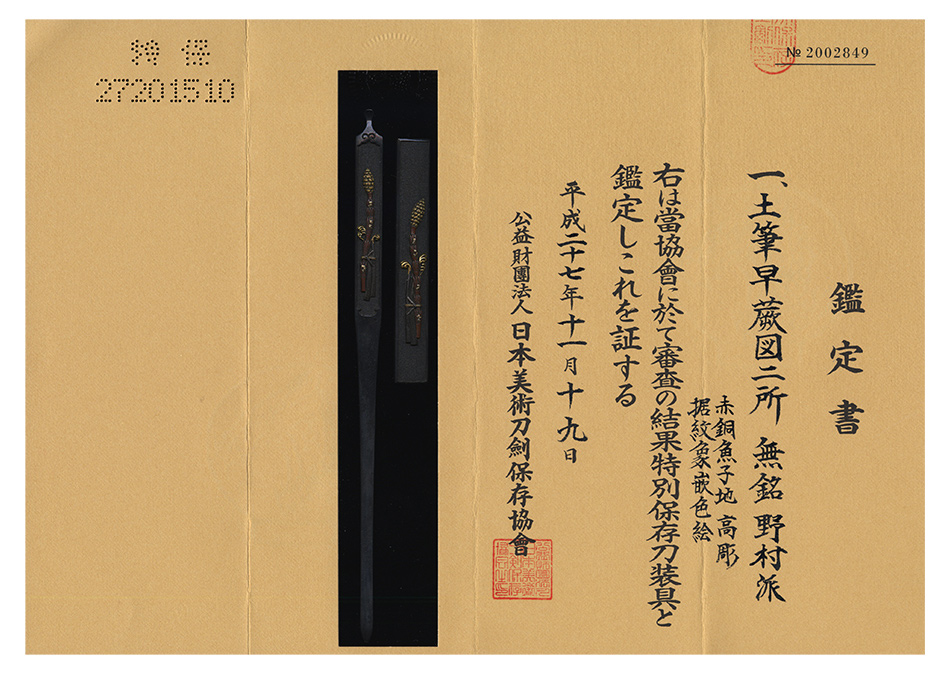 № 2002849
鑑定書
一、土筆早蕨図二所 無銘 野村派
赤銅魚子地 高彫
据紋象嵌色絵
右は當協會に於て審査の結果特別保存刀装具と
鑑定しこれを証する
平成二十七年十一月十九日
公益財團法人 日本美術刀剣保存協會
特 保
27201510